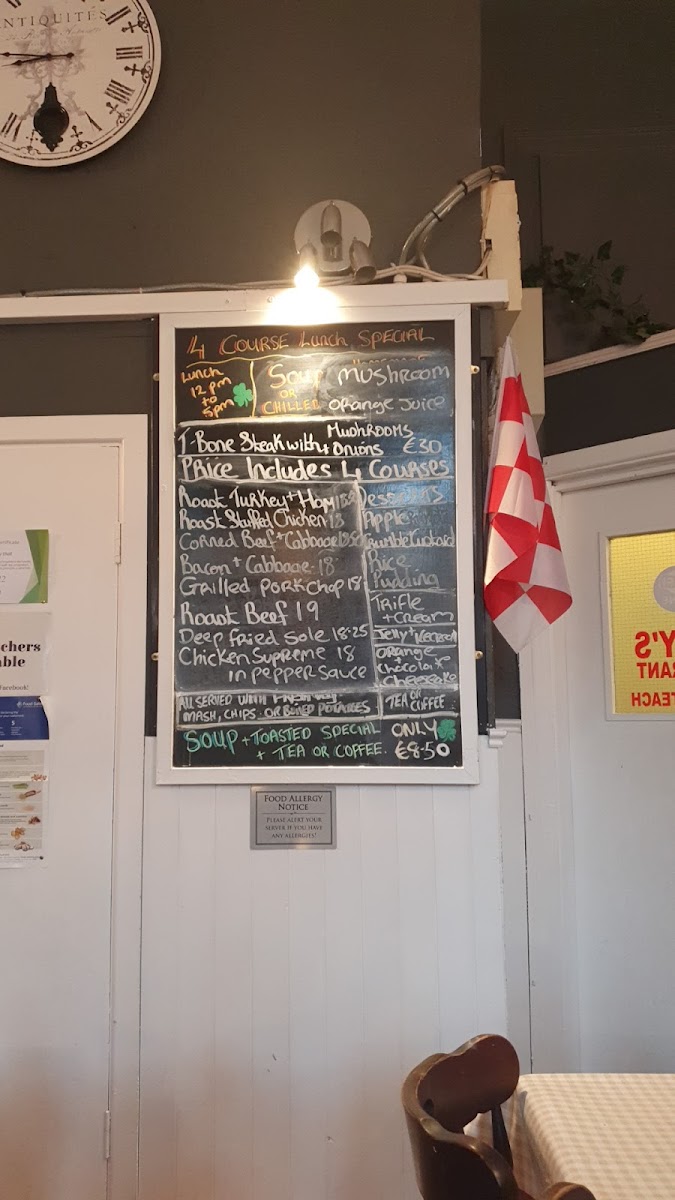 ANTIQUITÉS
4 COURSE Lunch SPECIAL
Lunch
12 pm
to
5pm
Soup MUSHROOM
OR
CHILLED ORANGE JUICE
T-Bone Steak with MUSHROOMS
+ ONIONS €30
PRICE Includes 4 COURSES
Roast Turkey + Ham
Roast Stuffed Chicken 18
Corned Beef + Cabbage
Bacon + Cabbage 18
Grilled Pork Chop 18
Roast Beef 19
Deep fried Sole 18.25
Chicken Supreme 18
IN PEPPER SAUCE
DESSERTS
Apple
Crumble Custard
Rice
Pudding
TRIFLE
+ CREAM
Jelly + Icecream
ORANGE
+
Chocolate
Cheesecake
ALL SERVED WITH
MASH, CHIPS OR BOILED POTATOES
TEA OR
COFFEE
SOUP + TOASTED SPECIAL
+ TEA OR COFFEE
ONLY
€8.50
FOOD ALLERGY
NOTICE
PLEASE ALERT YOUR
SERVER IF YOU HAVE
ANY ALLERGIES!
chers
ble
Facebook!
Y'S
RANT
TEACH